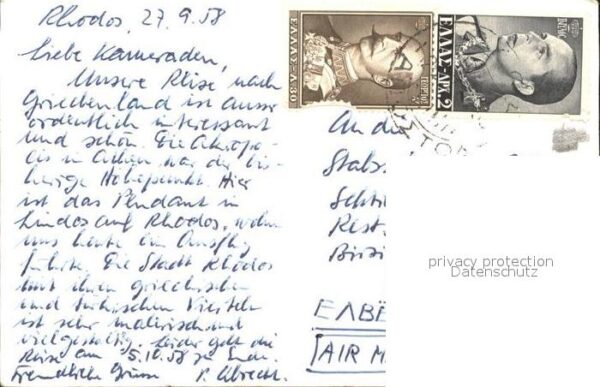 Rhodos, 27.9.58
Liebe Kameraden,
Unsere Reise nach
Griechenland ist ausser
ordentlich interessant
und schön. Die Akropo-
lis in Athen war der bis-
herige Höhepunkt. Hier
ist das Pendant in
Lindos auf Rhodos, wohin
uns heute ein Ausflug
führte. Die Stadt Rhodos
mit ihren griechischen
und türkischen Vierteln
ist sehr malerisch und
vielgestaltig. Leider geht die
Reise am 5.10.58 zu Ende.
Freundliche Grüsse P. Albrecht.
ΕΛΛΑΣ
ΕΛΛΑΣ-ΔΡΧ.2
An die
Stabs
Schü
Rest.
ΕΛΒΕ
AIR M
privacy protection
Datenschutz